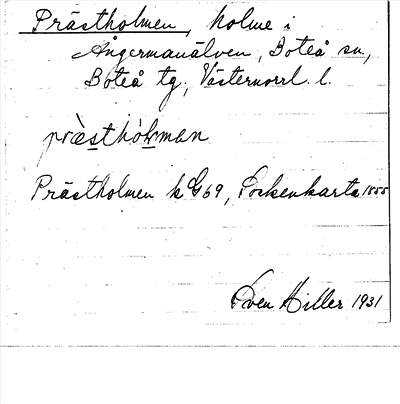 Prästholmen, holme i
Ångermanälven, Boteå sn,
Boteå tg, Västernorrl. l.
præsthòlmen
Prästholmen k G69, Sockenkarta 1855
Sven Hiller 1931